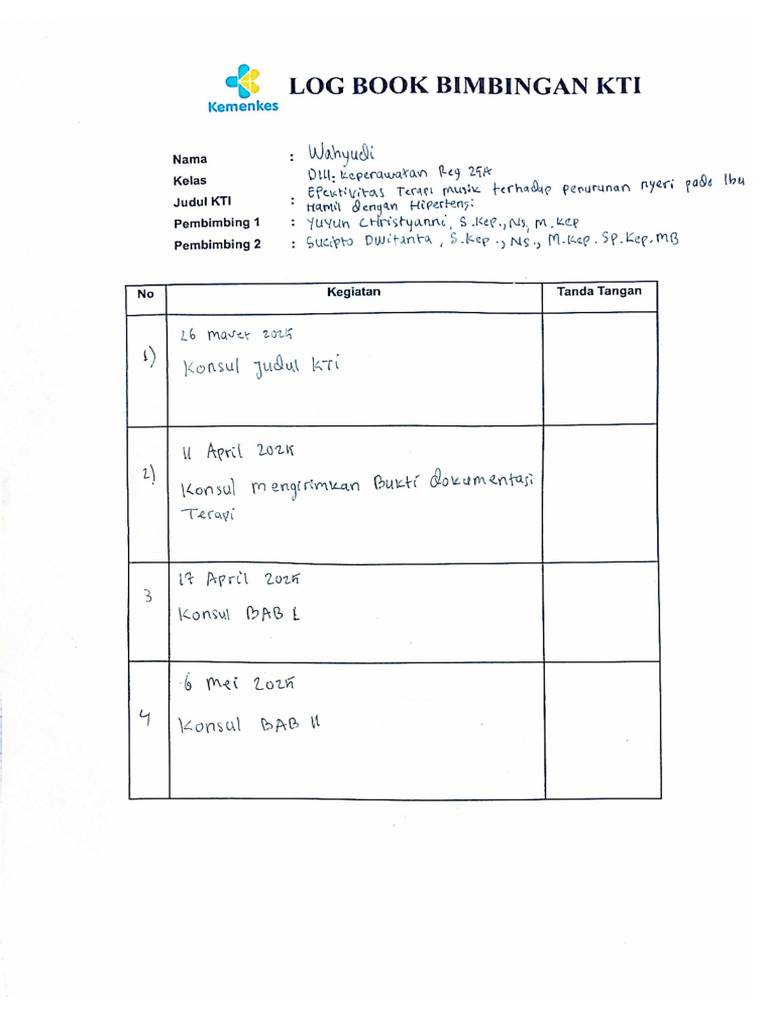 Kemenkes
LOG BOOK BIMBINGAN KTI
Nama : Wahyudi
Kelas DIII. Keperawatan Reg 25A
Judul KTI : Efektivitas Terapi musik terhadap penurunan nyeri pada Ibu
Hamil dengan Hipertensi
Pembimbing 1 : Yuyun Christyanni, S.Kep., Ns, M.Kep
Pembimbing 2 : Sucipto Dwitanta, S.Kep., Ns., M.Kep.Sp.Kep.MB
No Kegiatan Tanda Tangan
1) 26 maret 2025
Konsul Judul KTI
2) 11 April 2025
Konsul mengirimkan Bukti dokumentasi
Terapi
3 17 April 2025
Konsul BAB I
4 6 Mei 2025
Konsul BAB II